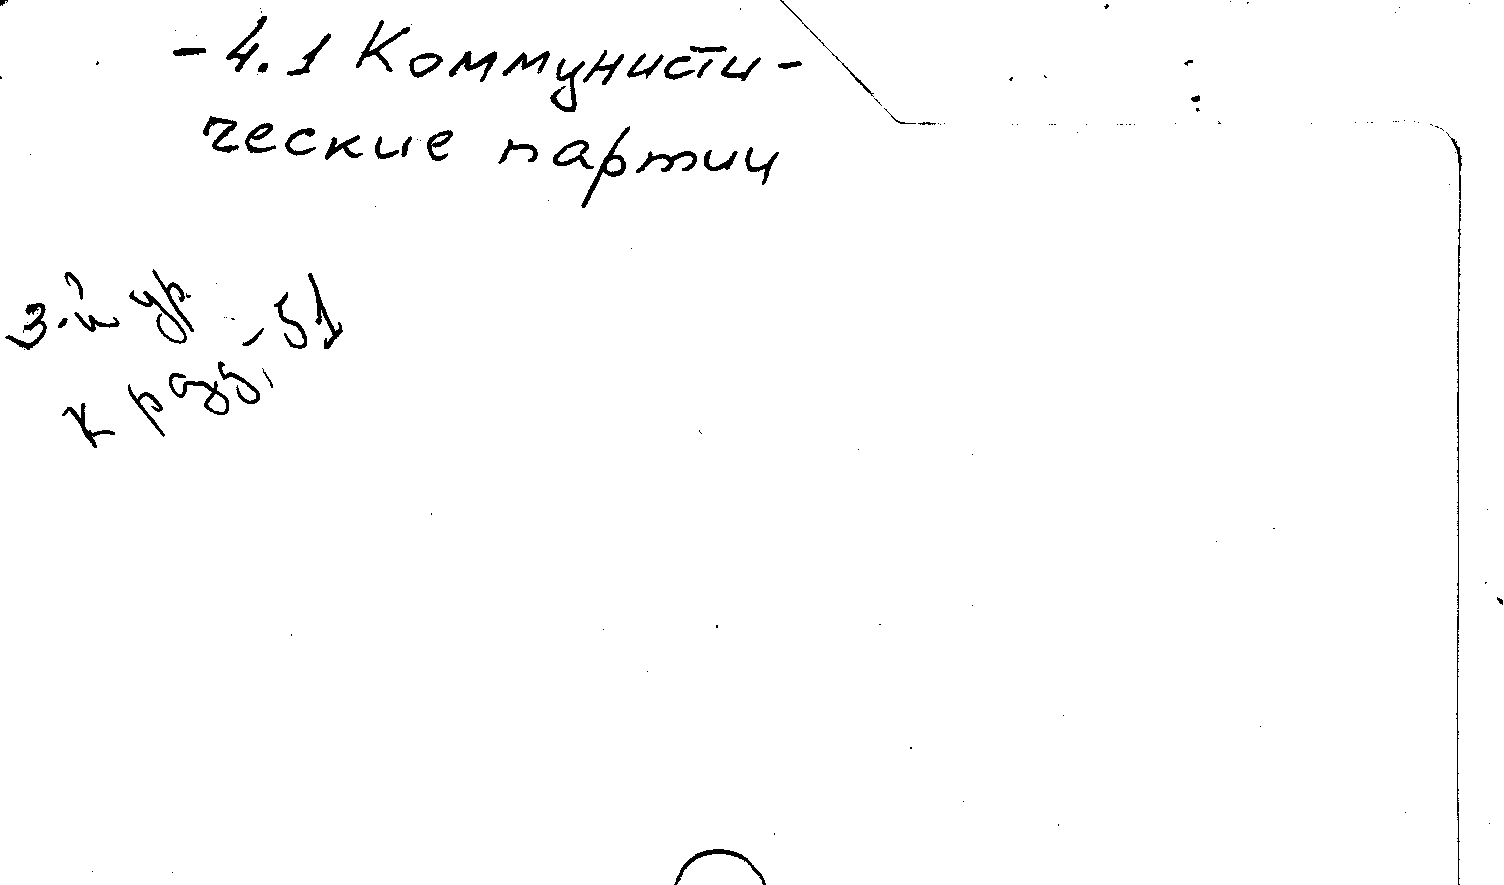 -4.1 Коммунисти-
ческие партии
3-й ур
к разд, -51